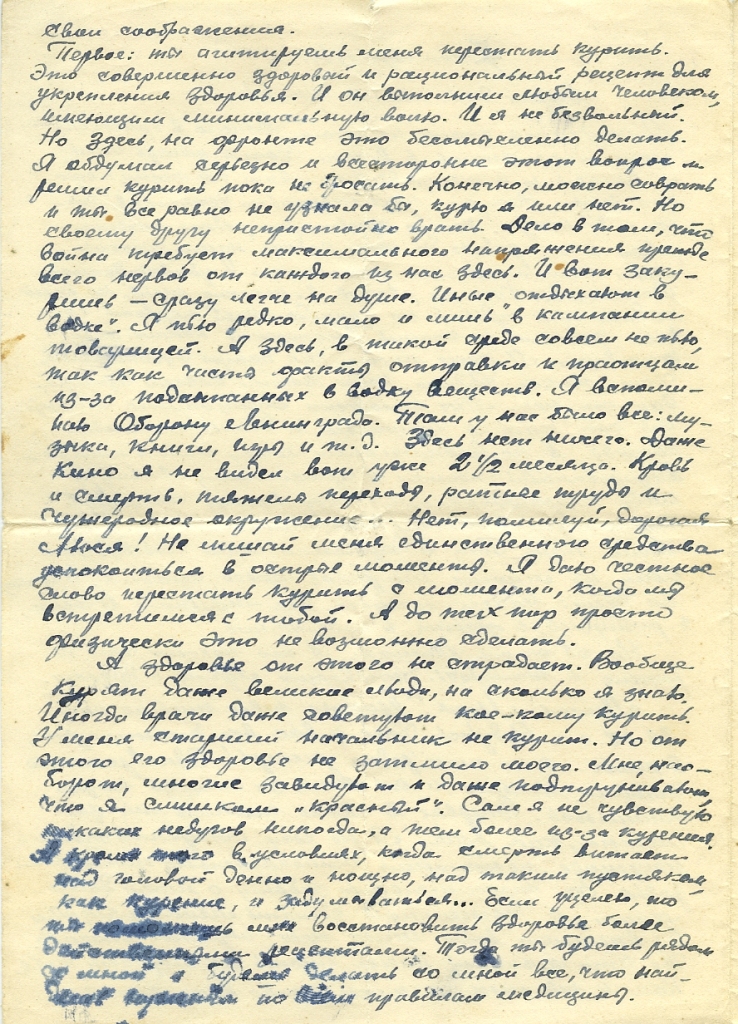 свои соображения.
Первое: ты агитируешь меня перестать курить.
Это совершенно здоровый и рациональный рецепт для
укрепления здоровья. И он выполним любым человеком,
имеющим минимальную волю. И я не безвольный.
Но здесь, на фронте это бессмысленно делать.
Я обдумал серьезно и всесторонне этот вопрос и
решил курить пока не бросать. Конечно, можно соврать
и ты все равно не узнала бы, курю я или нет. Но
своему другу непристойно врать. Дело в том, что
война требует максимального напряжения прежде
всего нервов от каждого из нас здесь. И вот заку-
ришь – сразу легче на душе. Иные "отдыхают в
водке". Я пью редко, мало и лишь в кампании
товарищей. А здесь, в такой среде совсем не пью,
так как часты факты отправки к праотцам
из-за подмешанных в водку веществ. Я вспоми-
наю Оборону Ленинграда. Там у нас было все: му-
зыка, книги, игры и т.д. Здесь нет ничего. Даже
кино я не видел вот уже 2 1/2 месяца. Кровь
и смерть, тяжелые переходы, ратные труды и
чужеродное окружение... Нет, помилуй, дорогая
Люся! Не лишай меня единственного средства
успокоиться в острые моменты. Я даю честное
слово перестать курить с момента, когда мы
встретимся с тобой. А до тех пор просто
физически это не возможно сделать.
А здоровье от этого не страдает. Вообще
курят даже великие люди, на сколько я знаю.
Иногда врачи даже советуют кое-кому курить.
У меня старший начальник не курит. Но от
этого его здоровье не затмило моего. Мне, нао-
борот, многие завидуют и даже подтрунивают,
что я слишком "красный". Сам я не чувствую
никаких недугов никогда, а тем более из-за курения.
А кроме того в условиях, когда смерть витает
над головой денно и нощно, над таким пустяком
как курение, и задумываться... Если уцелею, то
ты поможешь мне восстановить здоровье более
действенными рецептами. Тогда ты будешь рядом
со мной и будешь делать со мной все, что най-
дешь нужным по правилам медицины.